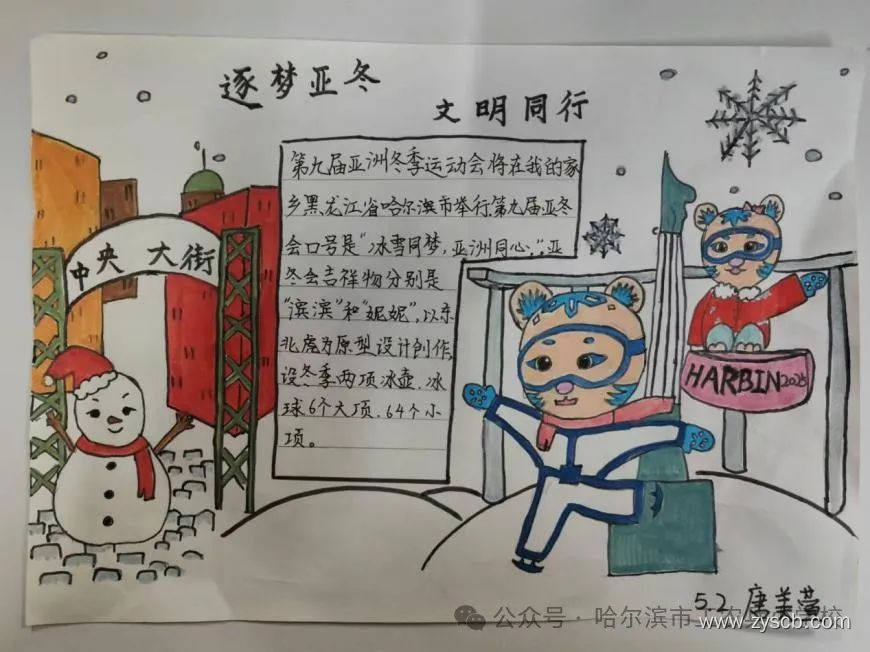 逐梦亚冬
文明同行
第九届亚洲冬季运动会将在我的家
乡黑龙江省哈尔滨市举行.第九届亚冬
会口号是"冰雪同梦,亚洲同心."亚
冬会吉祥物分别是
"滨滨"和"妮妮",以东
北虎为原型设计创作,
设冬季两项冰壶.冰
球6个大项.64个小
项。
中央大街
HARBIN2025
5.2 唐美萱
公众号·哈尔滨市
学校
www.zyscb.com